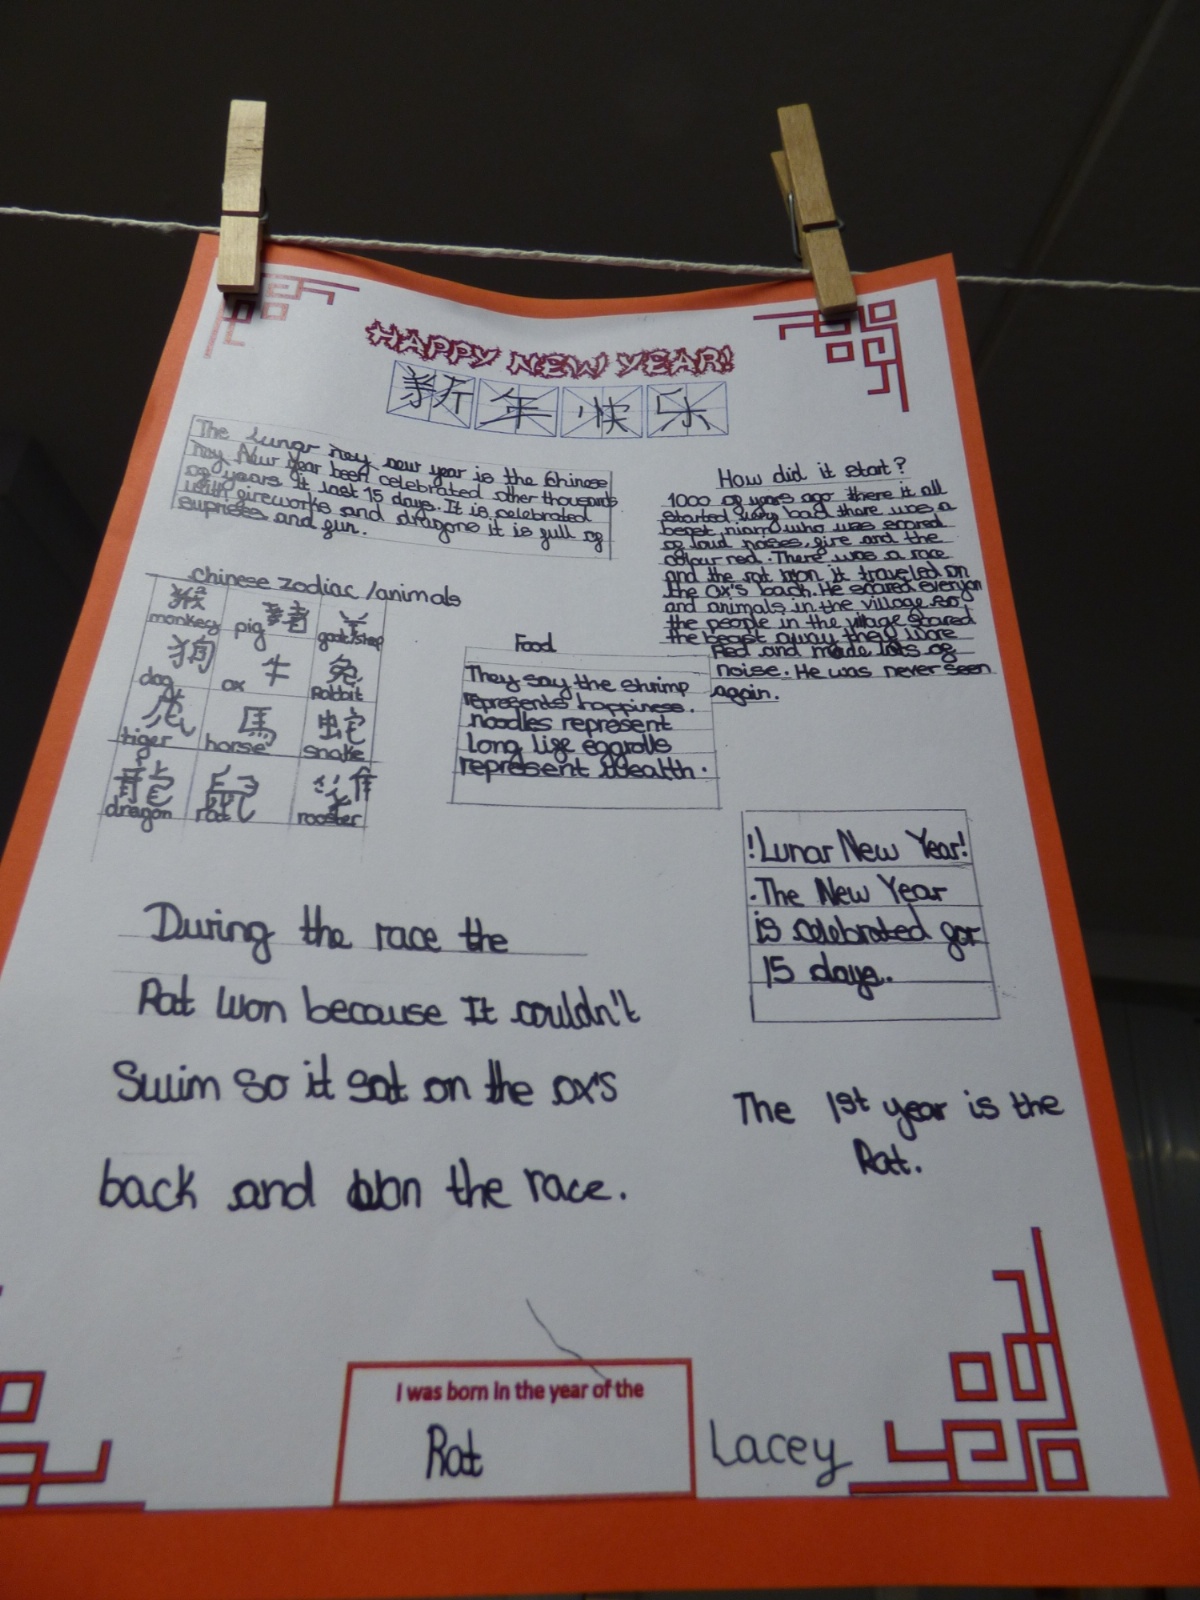 HAPPY NEW YEAR!
新年快乐
The Lunar ney new year is the Chinese
ney New Year been celebrated other thousands
og years it last 15 days. It is celebrated
with gireworks and dragons it is gull og
suprises and gun.
How did it start?
1000 og years ago there it all
started very bad there was a
beast, nian who was scared
og loud noises, gire and the
colour red. There was a race
and the rat won it traveled on
the ox's back. He scared everyon
and animals in the village so,
the people in the village scared
the beast away they wore
Red and made lots og
noise. He was never seen
again.
chinese zodiac /animals
猴 猪 羊
monkey pig goat/shep
狗 牛 兔
dog ox Rabbit
虎 馬 蛇
tiger horse snake
龍 鼠
dragon rat rooster
Food
They say the shrimp
represents happiness.
noodles represent
long lige eggrolls
represent Wealth.
!Lunar New Year!
.The New Year
is celebrated gor
15 days.
During the race the
Rat won because It couldn't
Swim so it sat on the ox's
back and won the race.
The 1st year is the
Rat.
I was born in the year of the
Rat
Lacey